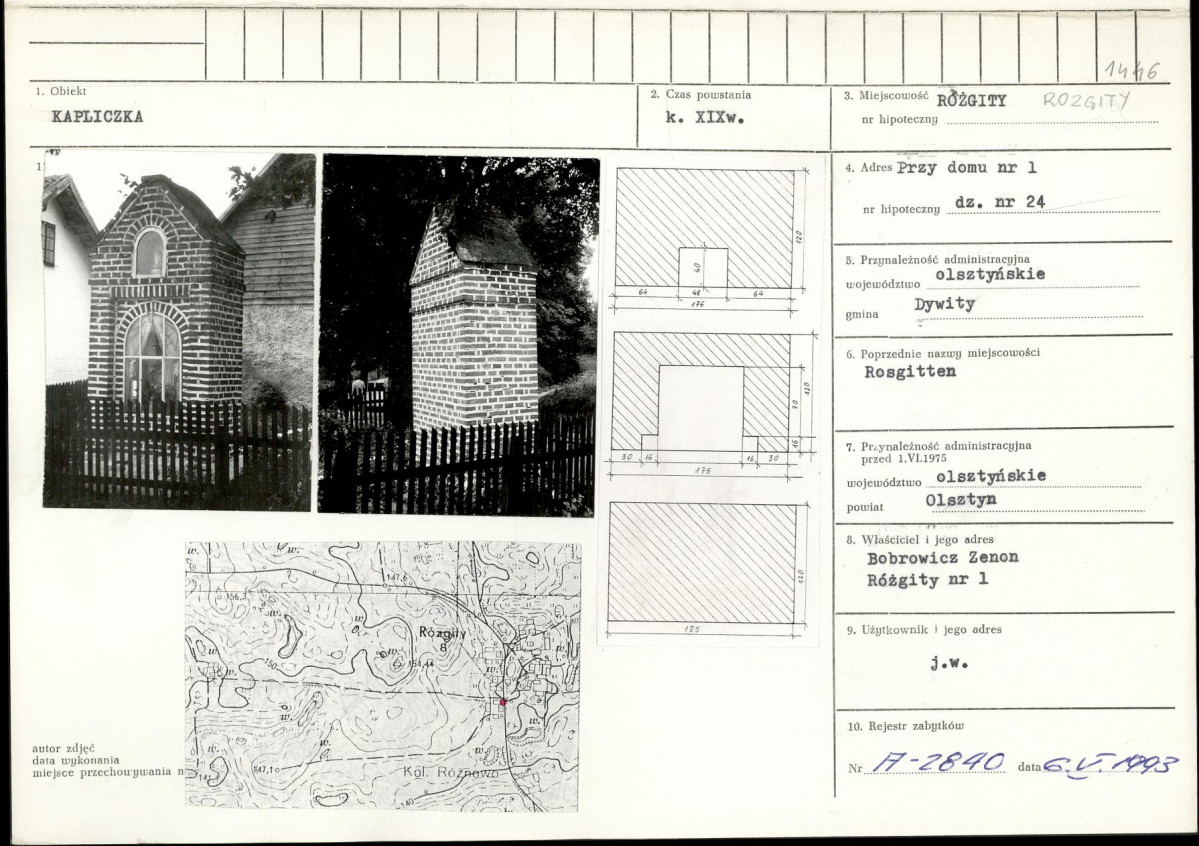 1446
1. Obiekt
KAPLICZKA
2. Czas powstania
k. XIXw.
3. Miejscowość RÓŻGITY ROZGITY
nr hipoteczny
4. Adres Przy domu nr 1
nr hipoteczny dz. nr 24
5. Przynależność administracyjna
województwo olsztyńskie
gmina Dywity
6. Poprzednie nazwy miejscowości
Rosgitten
7. Przynależność administracyjna
przed 1.VI.1975
województwo olsztyńskie
powiat Olsztyn
8. Właściciel i jego adres
Bobrowicz Zenon
Różgity nr 1
9. Użytkownik i jego adres
j.w.
10. Rejestr zabytków
Nr A-2840 data 6.V.1993
11
40
120
64 48 64
176
70
120
16
30 16 16 30
176
120
185
w. w.
147,6
156,3
w. w.
Rózgity
8
w. w.
150 154,44
w.
w. w.
w. w.
147,1
141,
Kol. Różnowo
140
autor zdjęć
data wykonania
miejsce przechowywania n